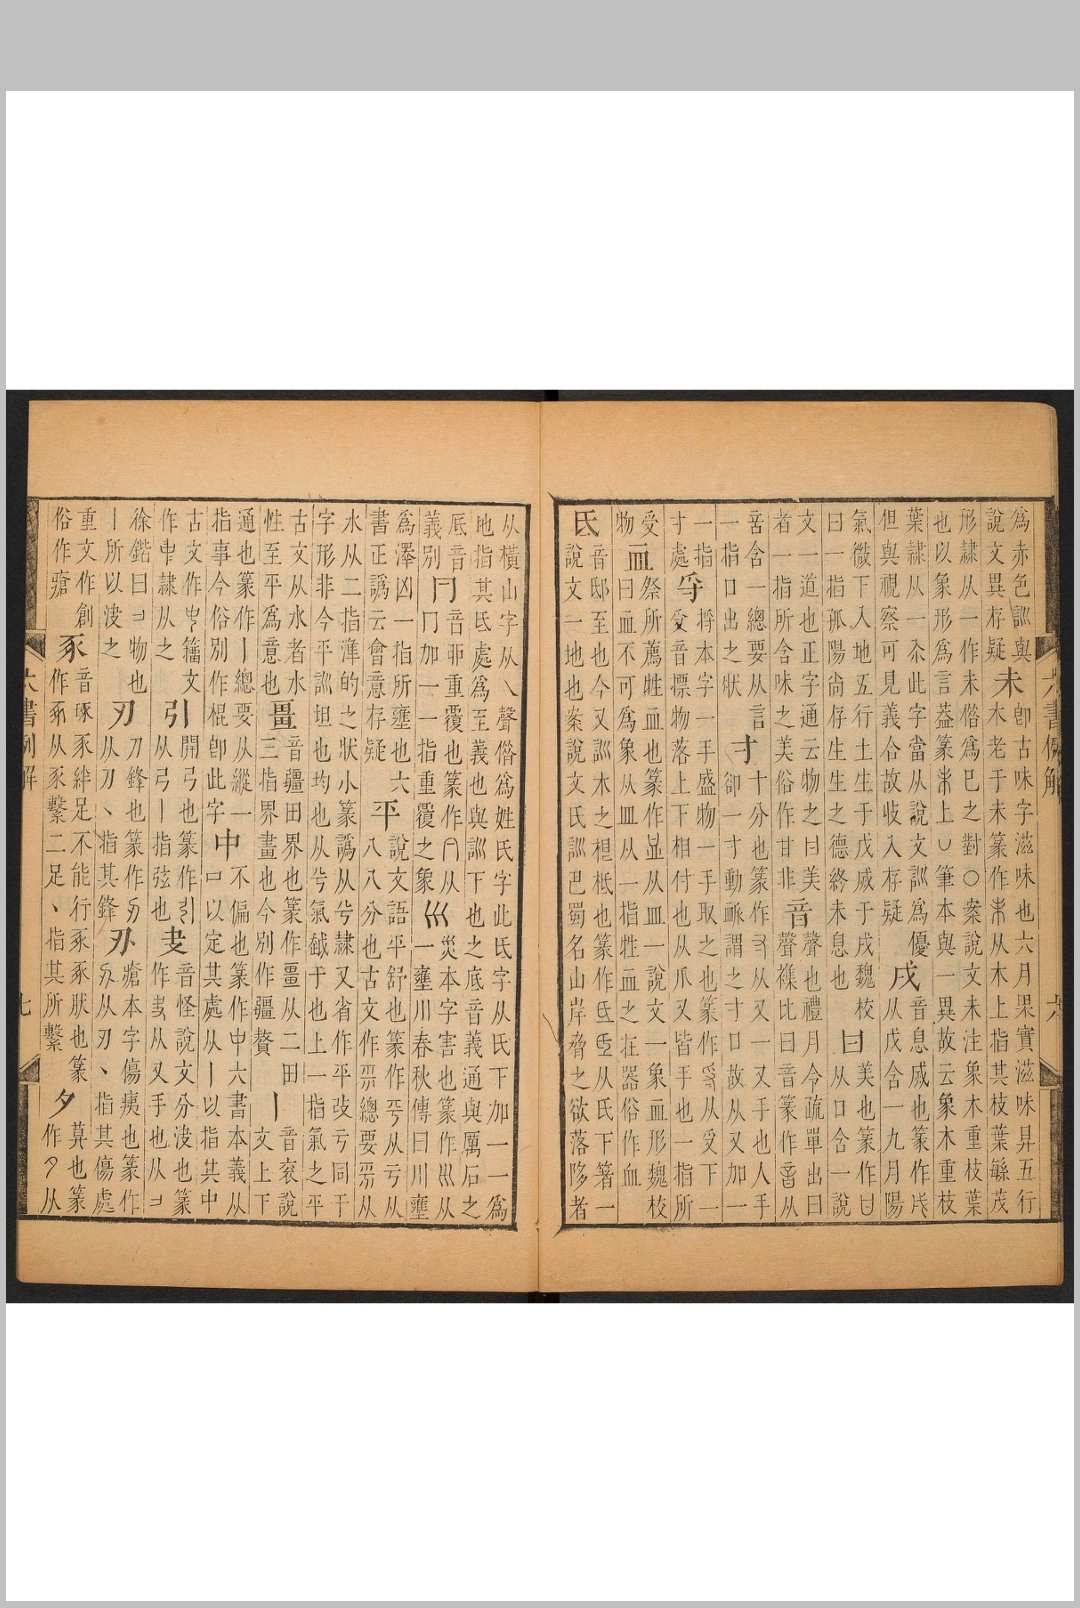 爲赤色訓與
說文異存疑
未
卽古味字滋味也六月果實滋味昇五行
木老于未篆作从木上指其枝葉緐茂
形隸从一作未俗爲巳之對○案說文未注象木重枝葉
也以象形爲言葢篆上∪筆本與一異故云象木重枝
葉隸从一此字當从說文訓爲優
但與視察可見義合故歧入存疑
戌
音息烕也篆作
从戊含一九月陽
氣微下入地五行土生于戊烕于戌魏校
曰一指孤陽尙存生生之德終未息也
甘
美也篆作甘
从口含一說
文一道也正字通云物之甘美
者一指所含味之美俗作甘非
音
聲也禮月令疏單出曰
聲襍比曰音篆作音从
言含一總要从言
一指口出之狀
寸
十分也篆作从又一又手也人手
卻一寸動脈謂之寸口故从又加一
一指
寸處
寽
捋本字一手盛物一手取之也篆作从𠬪下一
𠬪音摽物落上下相付也从爪又皆手也一指所
受
物
血
祭所薦牲血也篆作从皿一說文一象血形魏校
曰血不可爲象从皿从一指牲血之在器俗作血
氐
音邸至也今又訓木之根柢也篆作氐从氏下箸一
說文一地也案說文氏訓巴蜀名山岸脅之欲落陊者
从橫山字从乀聲俗爲姓氏字此氐字从氏下加一一爲
地指其氐處爲至義也與訓下也之底音義通與厲石之
厎音
義別
冃
音卯重覆也篆作从
冂加一一指重覆之象
巛
災本字害也篆作巛从
一壅川春秋傳曰川壅
爲澤凶一指所壅也六
書正譌云會意存疑
平
說文語平舒也篆作从亏从
八八分也古文作總要从
水从二指準的之狀小篆譌从兮隸又省作平攷亏同于
字形非今平訓坦也均也从兮氣𢧵于也上一指氣之平
古文从水者水
性至平爲意也
畺
音疆田界也篆作畺从二田
三指界畫也今別作疆贅
丨
音袞說
文上下
通也篆作丨總要从縱一
指事今俗別作棍卽此字
中
不偏也篆作中六書本義从
口以定其處从丨以指其中
古文作籒文
作隸从之
引
開弓也篆作引
从弓丨指弦也
𡗜
音怪說文分決也篆
作从又手也从コ
徐鍇曰コ物也
丨所以決之
刃
刀鋒也篆作
从刀丶指其鋒
刅
瘡本字傷痍也篆作
从刃丶指其傷處
重文作創
俗作瘡
豖
音啄豕絆足不能行豕豕狀也篆
作从豕繫二足丶指其所繫
夕
莫也篆
作从
六書例解
六
六書例解
七